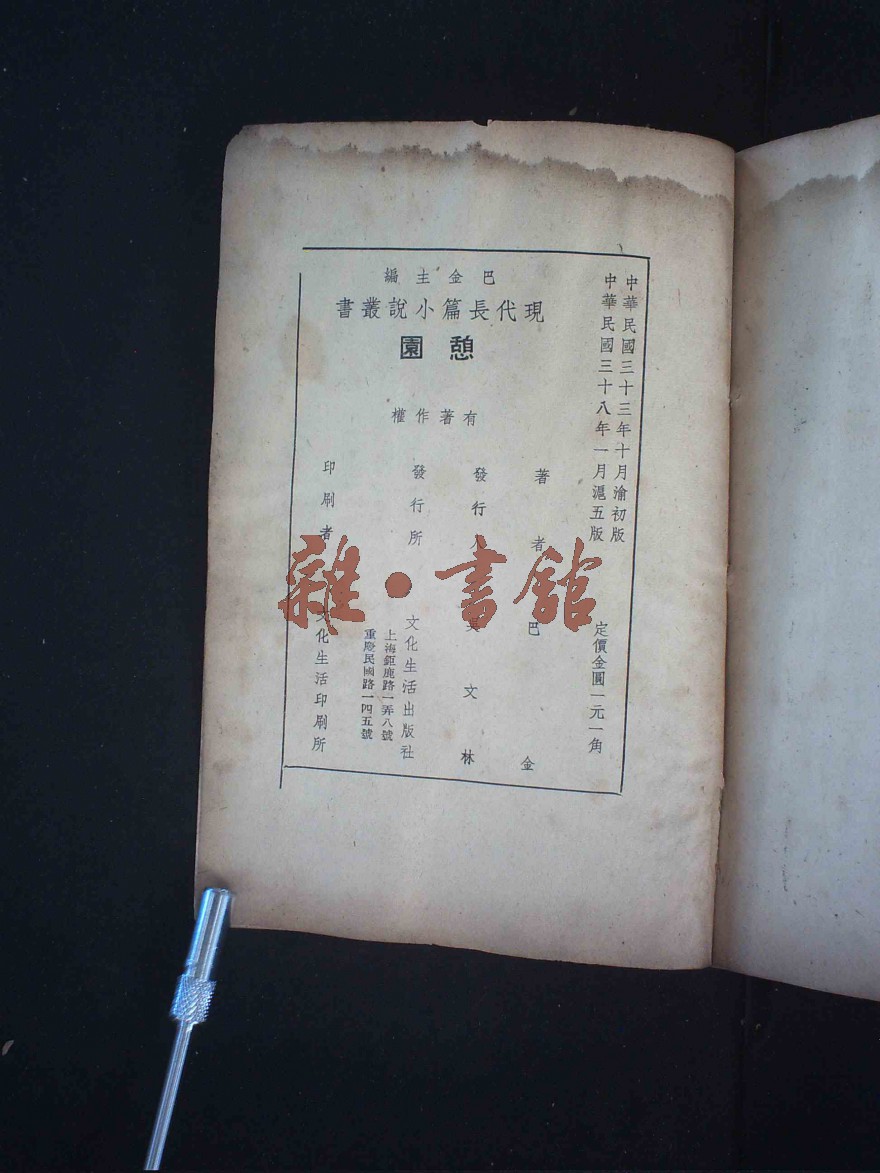 中華民國三十三年十月渝初版
中華民國三十八年一月滬五版
定價金圓一元一角
巴金主編
現代長篇小說叢書
憩園
有著作權
著者 巴金
發行人 吳文林
發行所 文化生活出版社
上海鉅鹿路一弄八號
重慶民國路一四五號
印刷者 文化生活印刷所
雜·書館